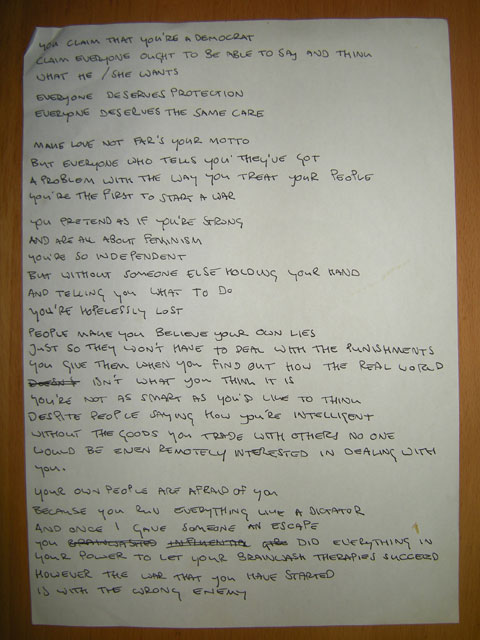 YOU CLAIM THAT YOU'RE A DEMOCRAT
CLAIM EVERYONE OUGHT TO BE ABLE TO SAY AND THINK
WHAT HE / SHE WANTS
EVERYONE DESERVES PROTECTION
EVERYONE DESERVES THE SAME CARE
MAKE LOVE NOT FAR'S YOUR MOTTO
BUT EVERYONE WHO TELLS YOU THEY'VE GOT
A PROBLEM WITH THE WAY YOU TREAT YOUR PEOPLE
YOU'RE THE FIRST TO START A WAR
YOU PRETEND AS IF YOU'RE STRONG
AND ARE ALL ABOUT FEMINISM
YOU'RE SO INDEPENDENT
BUT WITHOUT SOMEONE ELSE HOLDING YOUR HAND
AND TELLING YOU WHAT TO DO
YOU'RE HOPELESSLY LOST
PEOPLE MAKE YOU BELIEVE YOUR OWN LIES
JUST SO THEY WON'T HAVE TO DEAL WITH THE PUNISHMENTS
YOU GIVE THEM WHEN YOU FIND OUT HOW THE REAL WORLD
DOESN'T ISN'T WHAT YOU THINK IT IS
YOU'RE NOT AS SMART AS YOU'D LIKE TO THINK
DESPITE PEOPLE SAYING HOW YOU'RE INTELLIGENT
WITHOUT THE GOODS YOU TRADE WITH OTHERS NO ONE
WOULD BE EVEN REMOTELY INTERESTED IN DEALING WITH
YOU.
YOUR OWN PEOPLE ARE AFRAID OF YOU
BECAUSE YOU RUN EVERYTHING LIKE A DICTATOR
AND ONCE I GAVE SOMEONE AN ESCAPE
YOU BRAINWASHED INFLUENTIAL DID EVERYTHING IN
YOUR POWER TO LET YOUR BRAINWASH THERAPIES SUCCEED
HOWEVER THE WAR THAT YOU HAVE STARTED
IS WITH THE WRONG ENEMY